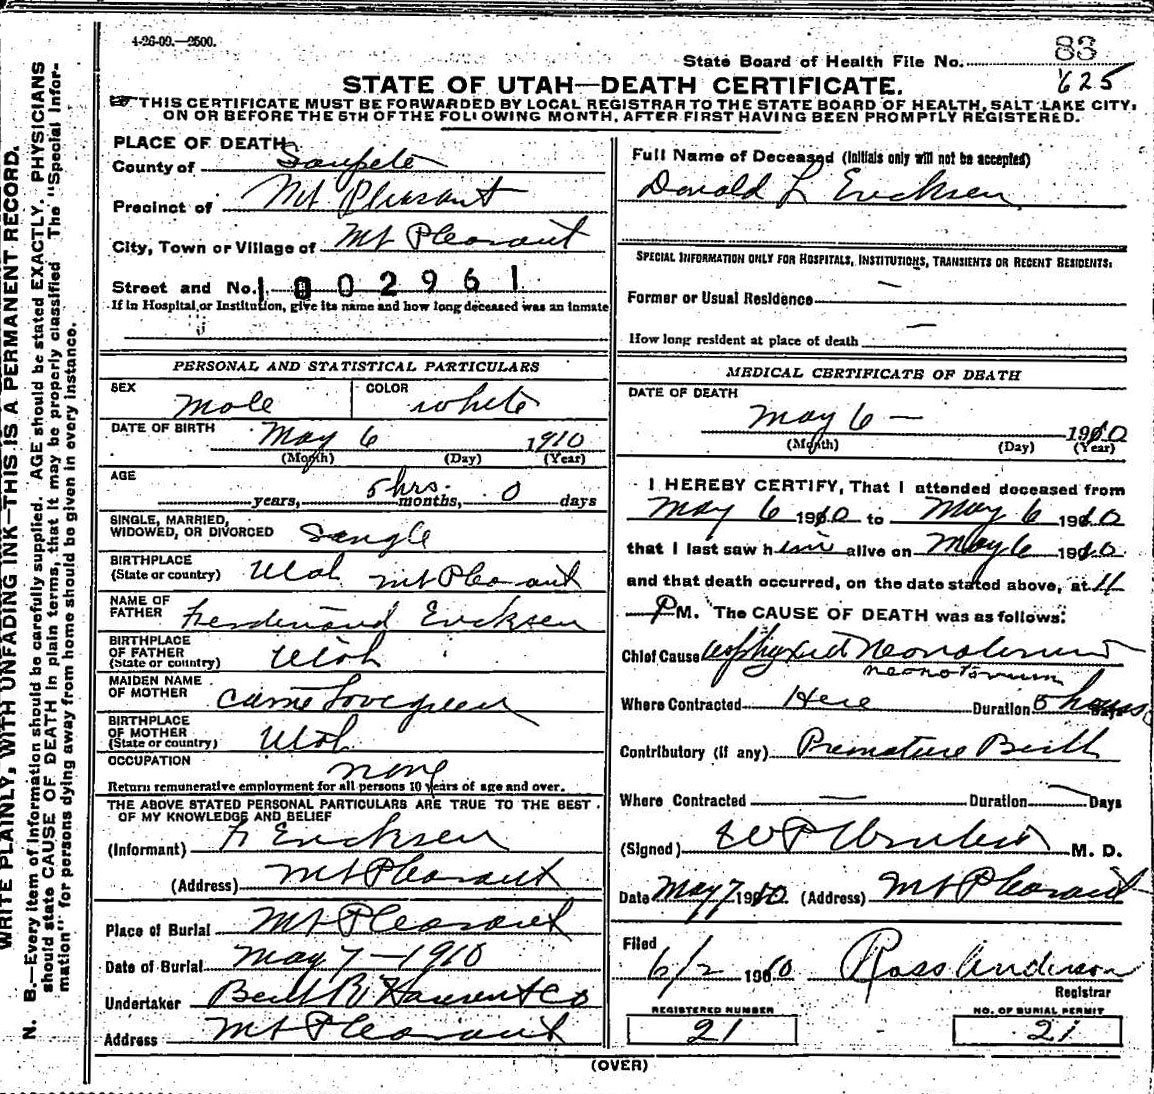 4-26-09.—2500.
State Board of Health File No. 83
625
STATE OF UTAH—DEATH CERTIFICATE.
THIS CERTIFICATE MUST BE FORWARDED BY LOCAL REGISTRAR TO THE STATE BOARD OF HEALTH, SALT LAKE CITY,
ON OR BEFORE THE 5TH OF THE FOLLOWING MONTH, AFTER FIRST HAVING BEEN PROMPTLY REGISTERED.
PLACE OF DEATH
County of Sanpete
Precinct of Mt Pleasant
City, Town or Village of Mt Pleasant
Street and No. 1002961
If in Hospital or Institution, give its name and how long deceased was an inmate
PERSONAL AND STATISTICAL PARTICULARS
SEX Male COLOR White
DATE OF BIRTH May 6 1910
(Month) (Day) (Year)
AGE
years, 5 hrs. months, 0 days
SINGLE, MARRIED,
WIDOWED, OR DIVORCED Single
BIRTHPLACE
(State or country) Utah Mt Pleasant
NAME OF
FATHER Ferdinand Ericksen
BIRTHPLACE
OF FATHER
(State or country) Utah
MAIDEN NAME
OF MOTHER Carrie Lovegreen
BIRTHPLACE
OF MOTHER
(State or country) Utah
OCCUPATION none
Return remunerative employment for all persons 10 years of age and over.
THE ABOVE STATED PERSONAL PARTICULARS ARE TRUE TO THE BEST
OF MY KNOWLEDGE AND BELIEF
(Informant) F Ericksen
(Address) Mt Pleasant
Place of Burial Mt Pleasant
Date of Burial May 7—1910
Undertaker Hansen & Co
Address Mt Pleasant
Full Name of Deceased (Initials only will not be accepted)
Donald L Ericksen
SPECIAL INFORMATION ONLY FOR HOSPITALS, INSTITUTIONS, TRANSIENTS OR RECENT RESIDENTS:
Former or Usual Residence —
How long resident at place of death —
MEDICAL CERTIFICATE OF DEATH
DATE OF DEATH
May 6 — 1910
(Month) (Day) (Year)
I HEREBY CERTIFY, That I attended deceased from
May 6 1910 to May 6 1910
that I last saw him alive on May 6 1910
and that death occurred, on the date stated above, at 11
P M. The CAUSE OF DEATH was as follows:
Chief Cause Neonatorum
neonatorum
Where Contracted Here Duration 5 hours
Contributory (if any) Premature Birth
Where Contracted — Duration — Days
(Signed) W P Winters M. D.
Date May 7 1910 (Address) Mt Pleasant
Filed
6/2 1910 Ross Anderson
Registrar
REGISTERED NUMBER
21
NO. OF BURIAL PERMIT
21
(OVER)
WRITE PLAINLY, WITH UNFADING INK—THIS IS A PERMANENT RECORD.
N. B.—Every item of information should be carefully supplied. AGE should be stated EXACTLY. PHYSICIANS
should state CAUSE OF DEATH in plain terms, that it may be properly classified. The "Special Infor-
mation" for persons dying away from home should be given in every instance.